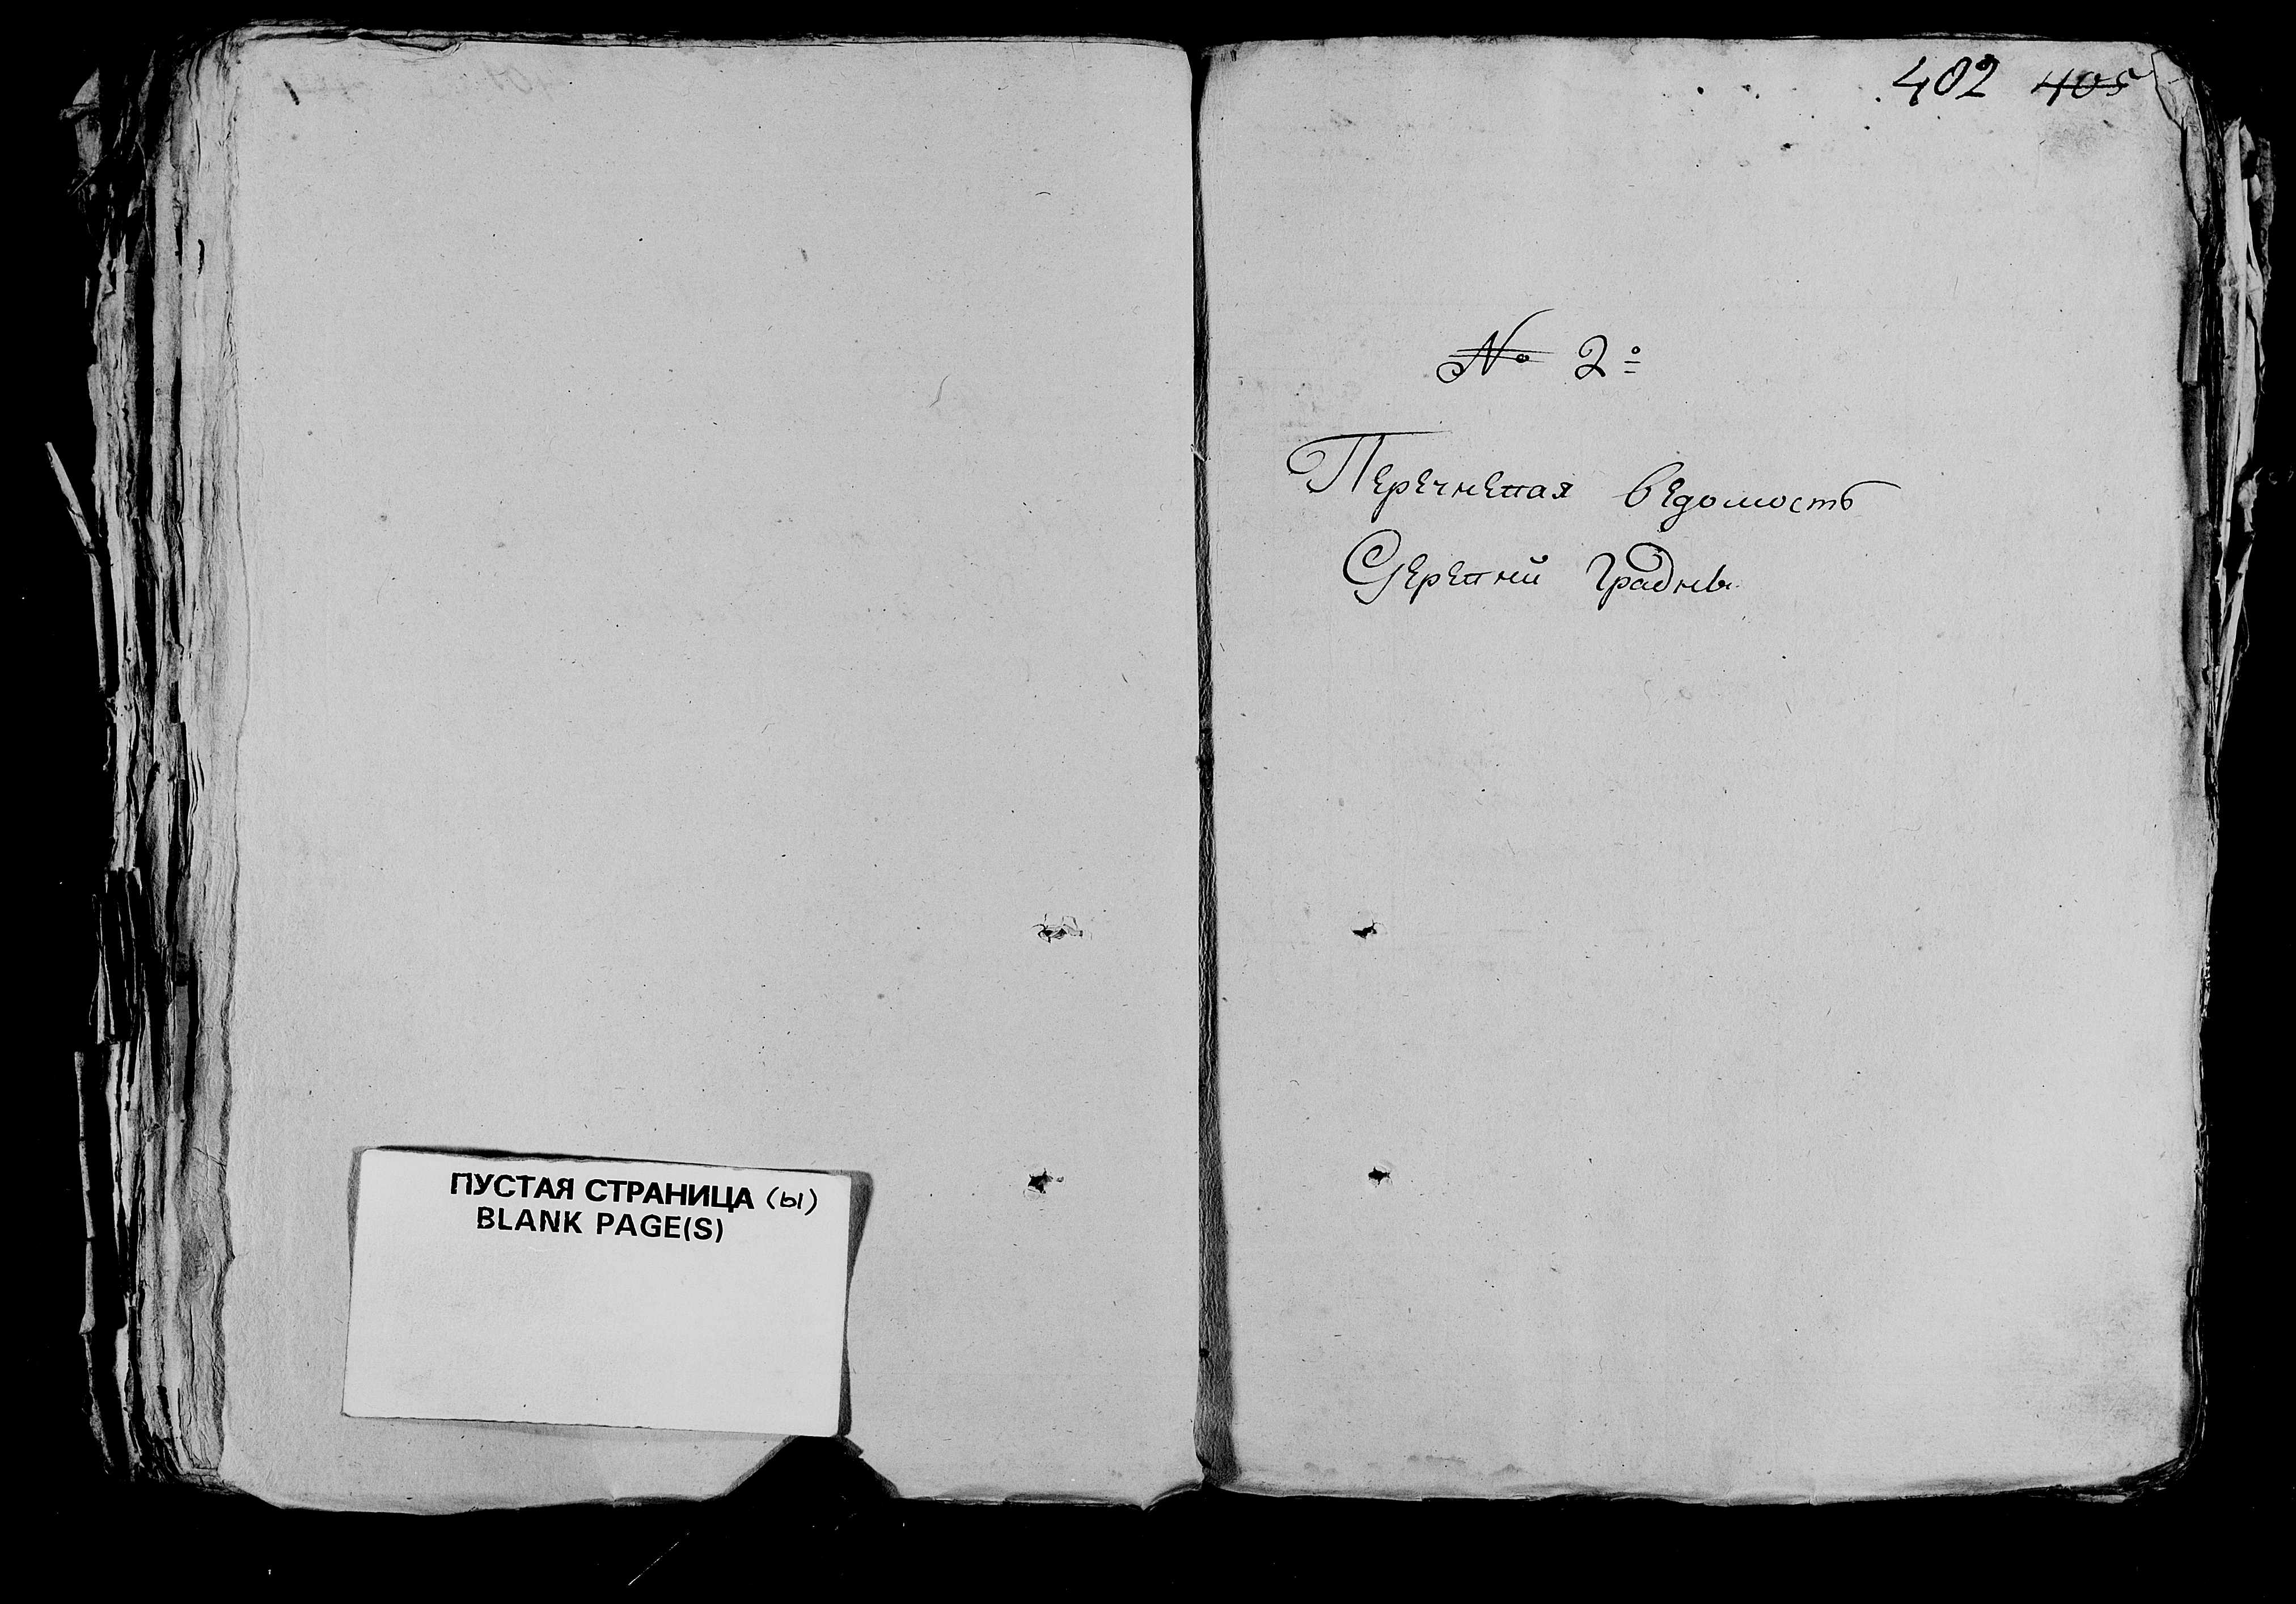 402 405
№ 2º
Перечневая ведомость
Деревни Градны
ПУСТАЯ СТРАНИЦА (Ы)
BLANK PAGE(S)